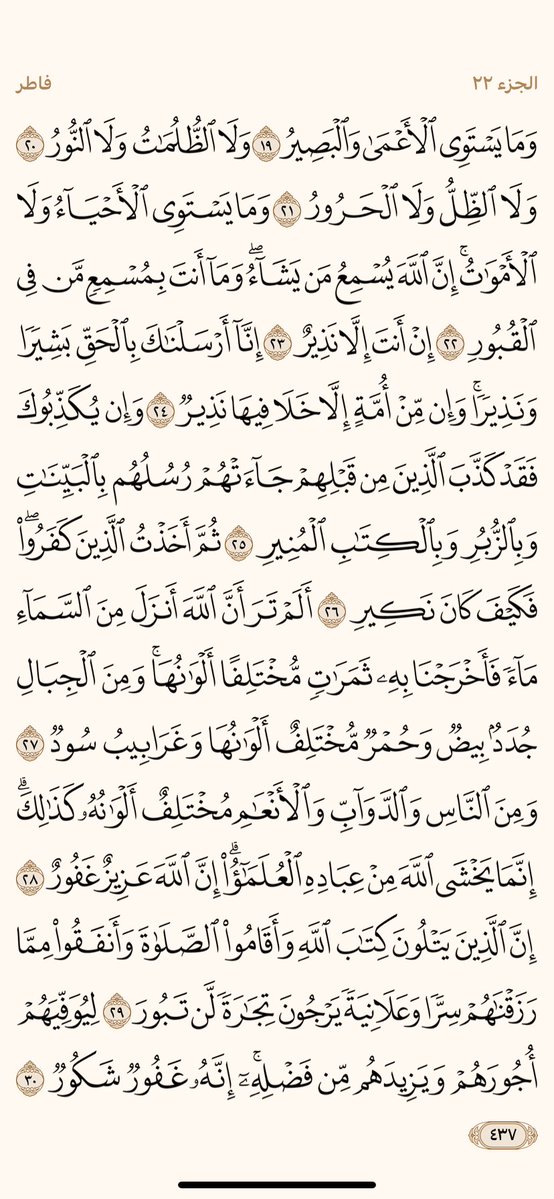 الجزء ٢٢
فاطر
وَمَا يَسْتَوِى ٱلْأَعْمَىٰ وَٱلْبَصِيرُ ١٩ وَلَا ٱلظُّلُمَٰتُ وَلَا ٱلنُّورُ ٢٠
وَلَا ٱلظِّلُّ وَلَا ٱلْحَرُورُ ٢١ وَمَا يَسْتَوِى ٱلْأَحْيَآءُ وَلَا
ٱلْأَمْوَٰتُۚ إِنَّ ٱللَّهَ يُسْمِعُ مَن يَشَآءُۖ وَمَآ أَنتَ بِمُسْمِعٍ مَّن فِى
ٱلْقُبُورِ ٢٢ إِنْ أَنتَ إِلَّا نَذِيرٌ ٢٣ إِنَّآ أَرْسَلْنَٰكَ بِٱلْحَقِّ بَشِيرًا
وَنَذِيرًاۚ وَإِن مِّنْ أُمَّةٍ إِلَّا خَلَا فِيهَا نَذِيرٌ ٢٤ وَإِن يُكَذِّبُوكَ
فَقَدْ كَذَّبَ ٱلَّذِينَ مِن قَبْلِهِمْ جَآءَتْهُمْ رُسُلُهُم بِٱلْبَيِّنَٰتِ
وَبِٱلزُّبُرِ وَبِٱلْكِتَٰبِ ٱلْمُنِيرِ ٢٥ ثُمَّ أَخَذْتُ ٱلَّذِينَ كَفَرُوا۟ۖ
فَكَيْفَ كَانَ نَكِيرِ ٢٦ أَلَمْ تَرَ أَنَّ ٱللَّهَ أَنزَلَ مِنَ ٱلسَّمَآءِ
مَآءً فَأَخْرَجْنَا بِهِۦ ثَمَرَٰتٍ مُّخْتَلِفًا أَلْوَٰنُهَاۚ وَمِنَ ٱلْجِبَالِ
جُدَدٌۢ بِيضٌ وَحُمْرٌ مُّخْتَلِفٌ أَلْوَٰنُهَا وَغَرَابِيبُ سُودٌ ٢٧
وَمِنَ ٱلنَّاسِ وَٱلدَّوَآبِّ وَٱلْأَنْعَٰمِ مُخْتَلِفٌ أَلْوَٰنُهُۥ كَذَٰلِكَۗ
إِنَّمَا يَخْشَى ٱللَّهَ مِنْ عِبَادِهِ ٱلْعُلَمَٰٓؤُا۟ۗ إِنَّ ٱللَّهَ عَزِيزٌ غَفُورٌ ٢٨
إِنَّ ٱلَّذِينَ يَتْلُونَ كِتَٰبَ ٱللَّهِ وَأَقَامُوا۟ ٱلصَّلَوٰةَ وَأَنفَقُوا۟ مِمَّا
رَزَقْنَٰهُمْ سِرًّا وَعَلَانِيَةً يَرْجُونَ تِجَٰرَةً لَّن تَبُورَ ٢٩ لِيُوَفِّيَهُمْ
أُجُورَهُمْ وَيَزِيدَهُم مِّن فَضْلِهِۦٓۚ إِنَّهُۥ غَفُورٌ شَكُورٌ ٣٠
٤٣٧